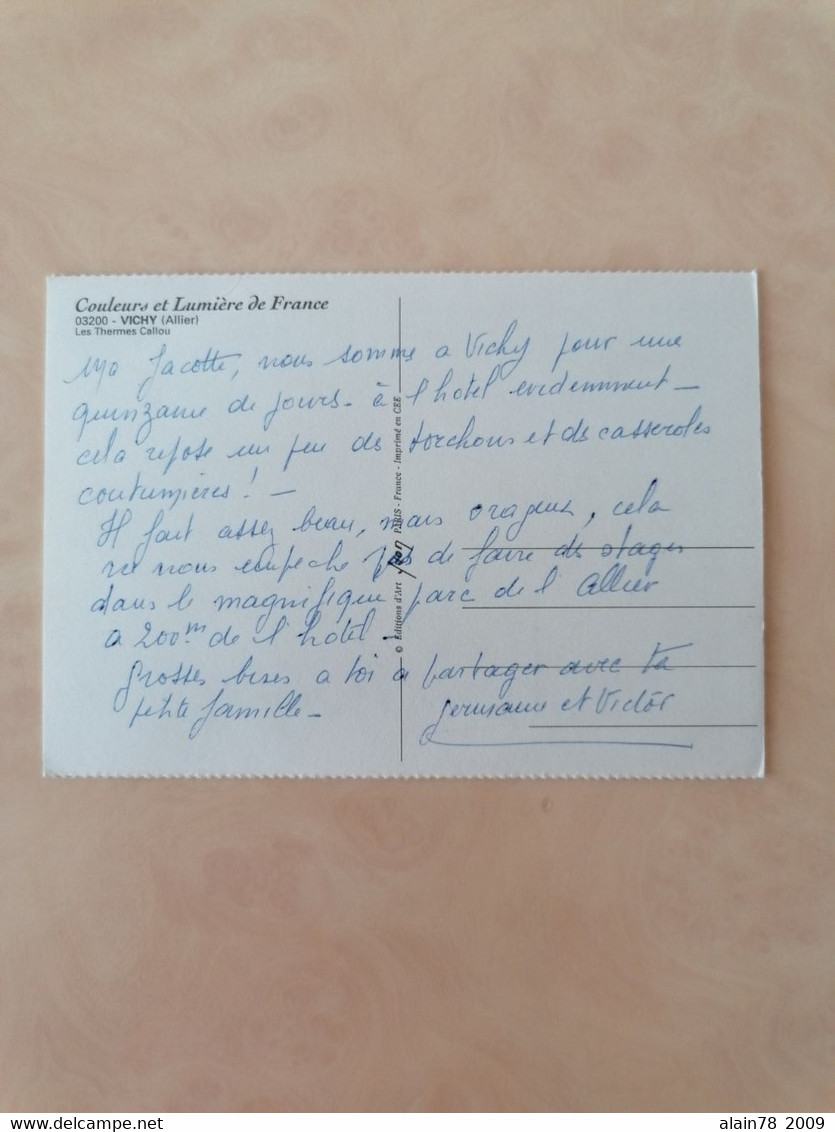 Couleurs et Lumière de France
03200 - VICHY (Allier)
Les Thermes Callou
Ma Jacotte, nous somme a Vichy pour une
quinzaine de jours - à l'hotel evidemment -
cela repose un peu des torchons et des casseroles
coutumières ! -
Il fait assez beau, mais orageux, cela
ne nous empeche pas de faire des stages
dans le magnifique parc de l'Allier
a 200m de l'hotel -
Grosses bises a toi a partager avec ta
petite famille -
Germaine et Victor
© Editions d'Art PARIS - France - Imprimé en CEE
alain78_2009